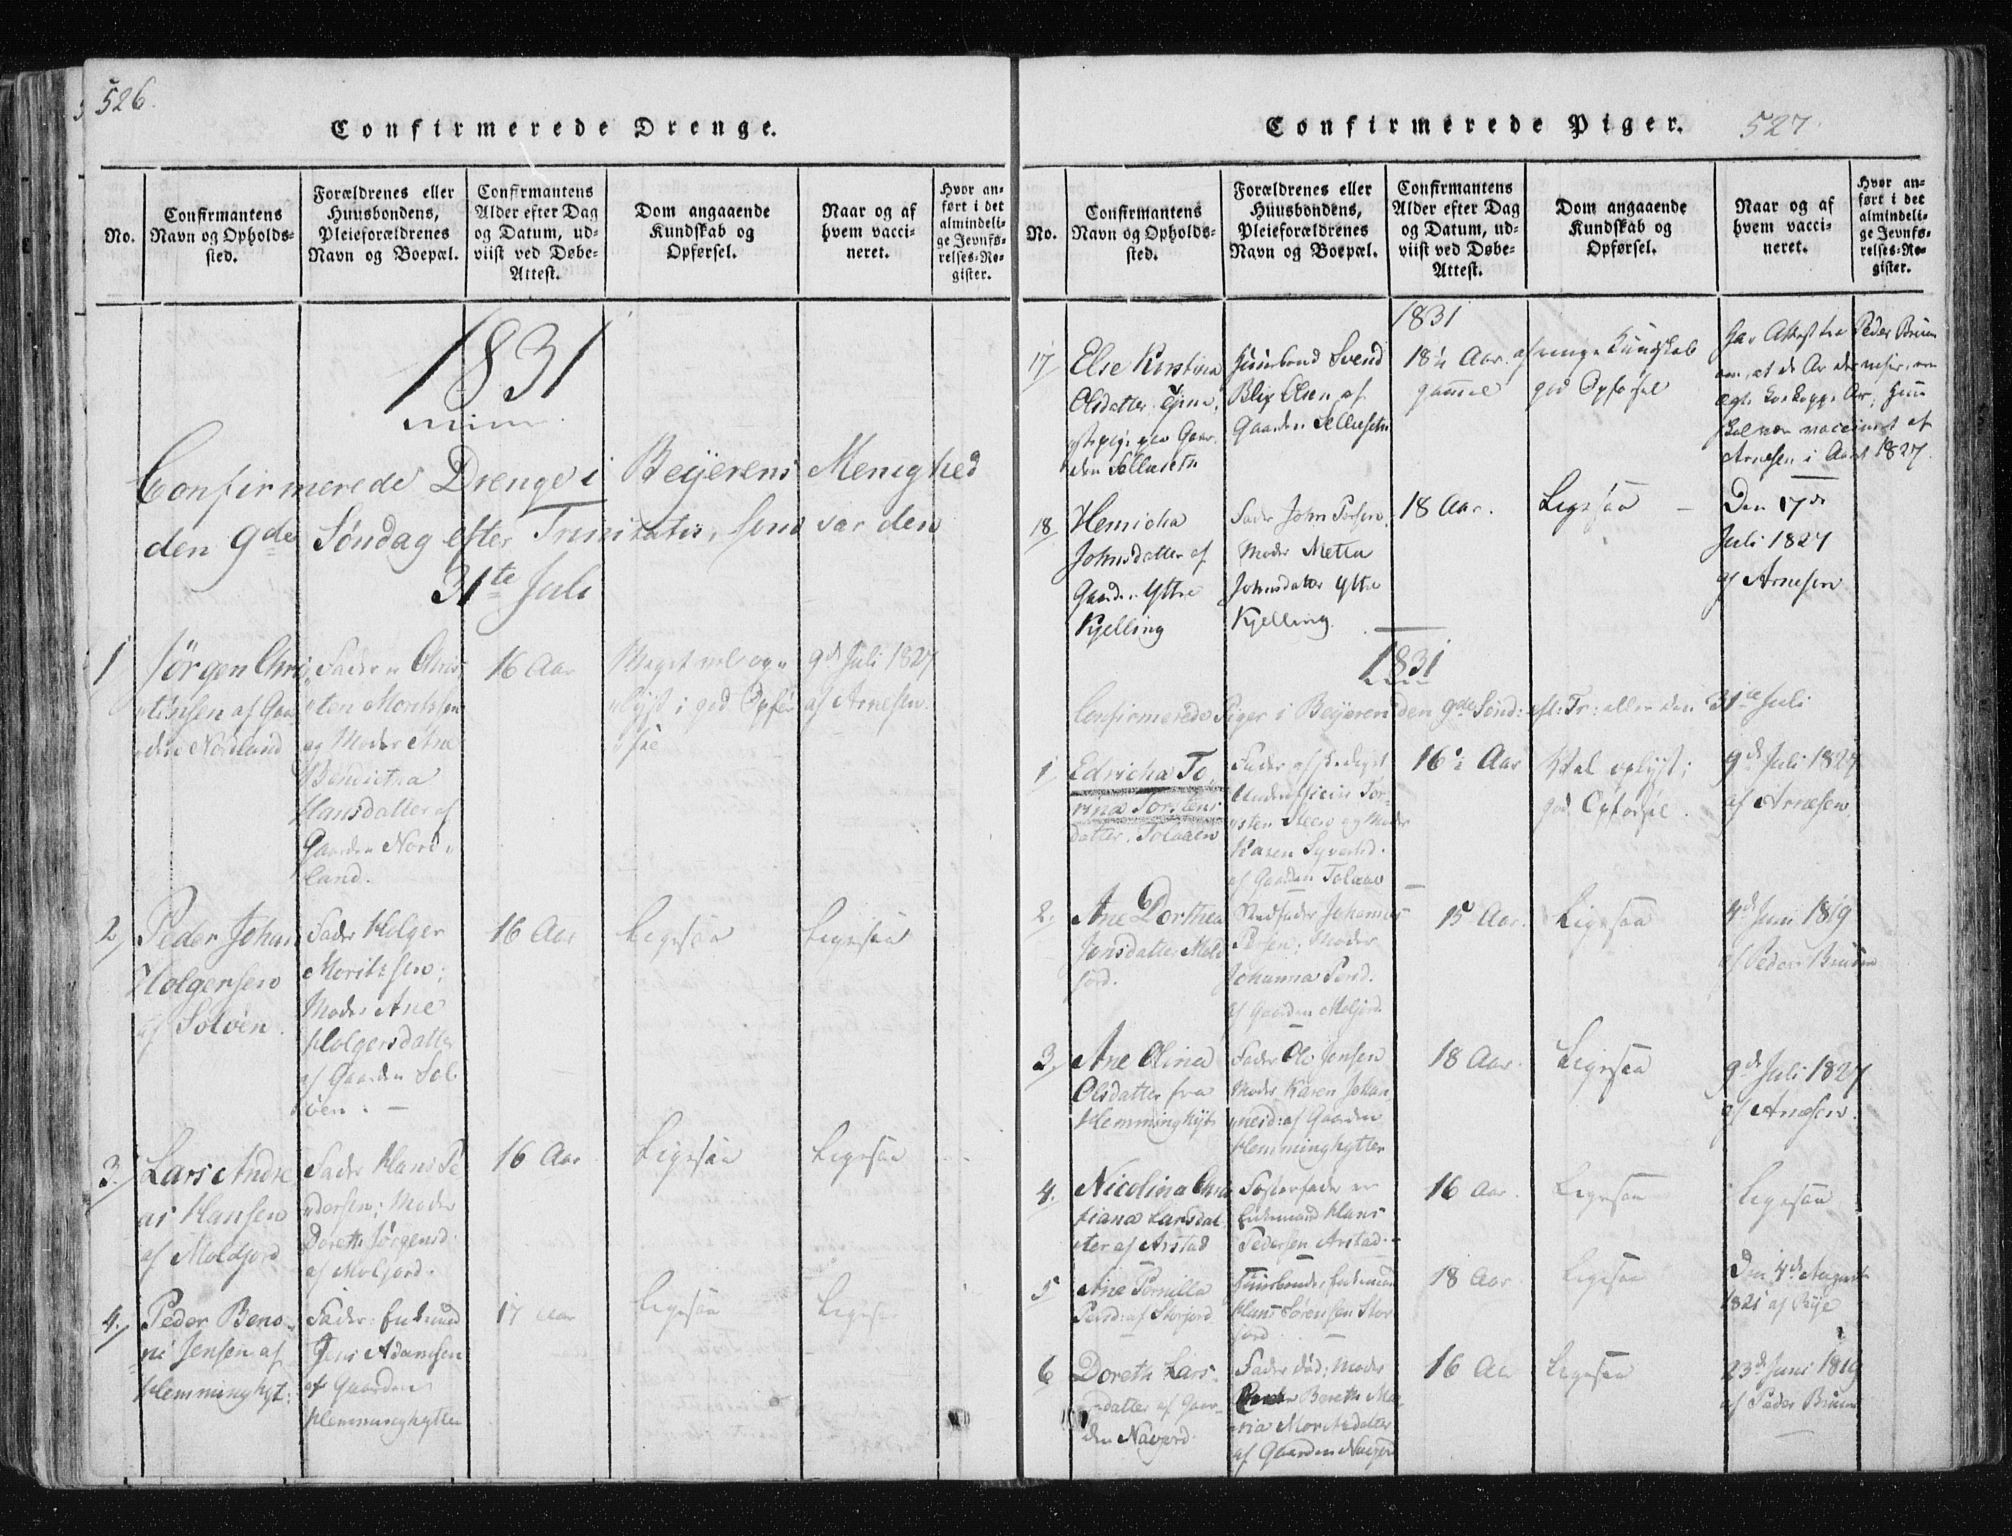 526.
Confirmerede Drenge.
No.
Confirmantens
Navn og Opholds-
sted.
Forældrenes eller
Huusbondens,
Pleieforældrenes
Navn og Boepæl.
Confirmantens
Alder efter Dag
og Datum, ud-
viist ved Døbe-
Attest.
Dom angaaende
Kundskab og
Opførsel.
Naar og af
hvem vacci-
neret.
Hvor an-
ført i det
almindeli-
ge Jevnfø-
relses-Re-
gister.
1831
Confirmerede Drenge i Beijerens Menighed
den 9de Søndag efter Trinitatis, som var den
31te Juli
1
Jørgen Chri
stensen af Gaa
den Nordland
Fader Chris
ten Moritssen
og Moder Ane
Bendictha
Hansdatter af
Gaarden Nord
land.
16 Aar
Meget vel op
lyst i god Opfør
9de Juli 1827
af Arnesen
2
Peder Johan
Holgersen
af Soløen.
Fader Holger
Moritssen;
Moder Ane
Holgersdatter
af Gaarden Sol
øen. —
16 Aar
Ligesaa
Ligesaa
3.
Lars Andre
as Hansen
af Moldjord
Fader Hans Pe
dersen; Moder
Doreth Jørgensd.
af Moljord.
16 Aar
Ligesaa
Ligesaa
4.
Peder Beno
ni Jensen af
Hemminghyt:
Fader:
Jens Adamsen
af Gaarden
Hemminghytten
17 Aar
Ligesaa
Ligesaa
Confirmerede Piger.
527.
No.
Confirmantens
Navn og Opholds-
sted.
Forældrenes eller
Huusbondens,
Pleieforældrenes
Navn og Boepæl.
Confirmantens
Alder efter Dag
og Datum, ud-
viist ved Døbe-
Attest.
Dom angaaende
Kundskab og
Opførsel.
Naar og af
hvem vacci-
neret.
Hvor an-
ført i det
almindeli-
ge Jevnfø-
relses-Re-
gister.
1831
17
Else Kirstina
Olsdatter, Tjene
stepige paa Gaar
den Sellesetn
Huusbond Svend
Blix Olsen af
Gaarden Sellesetn
18½ Aar
gammel
af ringe Kundskab
god Opførsel
Har Attest fra Peder Bruun
vaccineret af
Arnesen i Aaret 1827.
18
Henricha
Johnsdatter af
Gaarden Yttre
Kjelling
Fader John
Moder Metta
Johnsdatter Yttre
Kjelling.
18 Aar.
Ligesaa —
Den 17de
Juli 1827
af Arnesen
1831
Confirmerede Piger i Beijeren den 9de Sønd: eft: Tr: eller den 31te Juli
1
Edricha To
rina Torstens
datter, Tolaaen
Fader afskediget
Underofficier Tor
sten og Moder
Karen Syversd.
af Gaarden Tolaaen
16½ Aar
Vel oplyst;
god Opførsel.
9de Juli 1827
af Arnesen.
2.
Ane Dorthea
Jonsdatter Mold
jord.
Stedfader Johannes
Persen; Moder
Johanna Persd.
af Gaarden Moljord
15 Aar.
Ligesaa
4de Juni 1819
af Peder Bruun
3.
Ane Olina
Olsdatter fra
Hemminghyt
Fader Ole Jensen
Moder Karen Johan
nesd: af Gaarden
Hemminghytten
18 Aar.
Ligesaa
9de Juli 1827
af Arnesen.
4.
Nicolina Chris
tiana Larsdat
ter af Arstad
Fosterfader er
Hans
Pedersen Arstad. —
16 Aar.
Ligesaa
Ligesaa
5
Ane Pernilla
Persd: af Storjord
Huusbonde,
Hans Sørensen Stor
jord. —
18 Aar
Ligesaa
Den 4de August
1825 af
6
Doreth Lars
datter af Gaar
den
Fader død; Moder
Bereth Ma
ria Moritsdatter
af Gaarden
16 Aar
Ligesaa
23de Juni 1819
af Peder Bruun